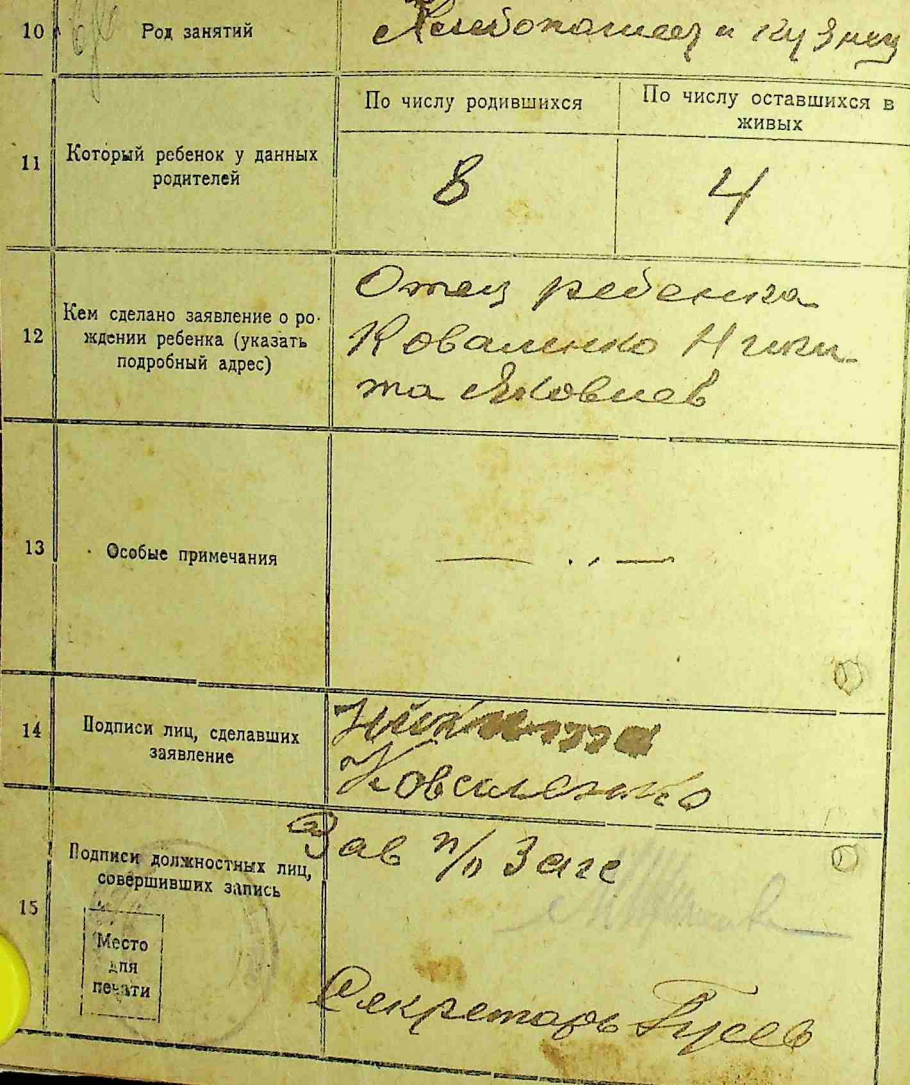 10 Род занятий Хлебопашец и кузнец
По числу родившихся По числу оставшихся в
живых
11 Который ребенок у данных
родителей
8 4
12 Кем сделано заявление о ро-
ждении ребенка (указать
подробный адрес)
Отец ребенка
Коваленко Ники-
та Яковлев
13 Особые примечания
14 Подписи лиц, сделавших
заявление
Никита
Коваленко
15 Подписи должностных лиц,
совершивших запись
Место
для
печати
Зав п/о Загс
Секретарь Гусев